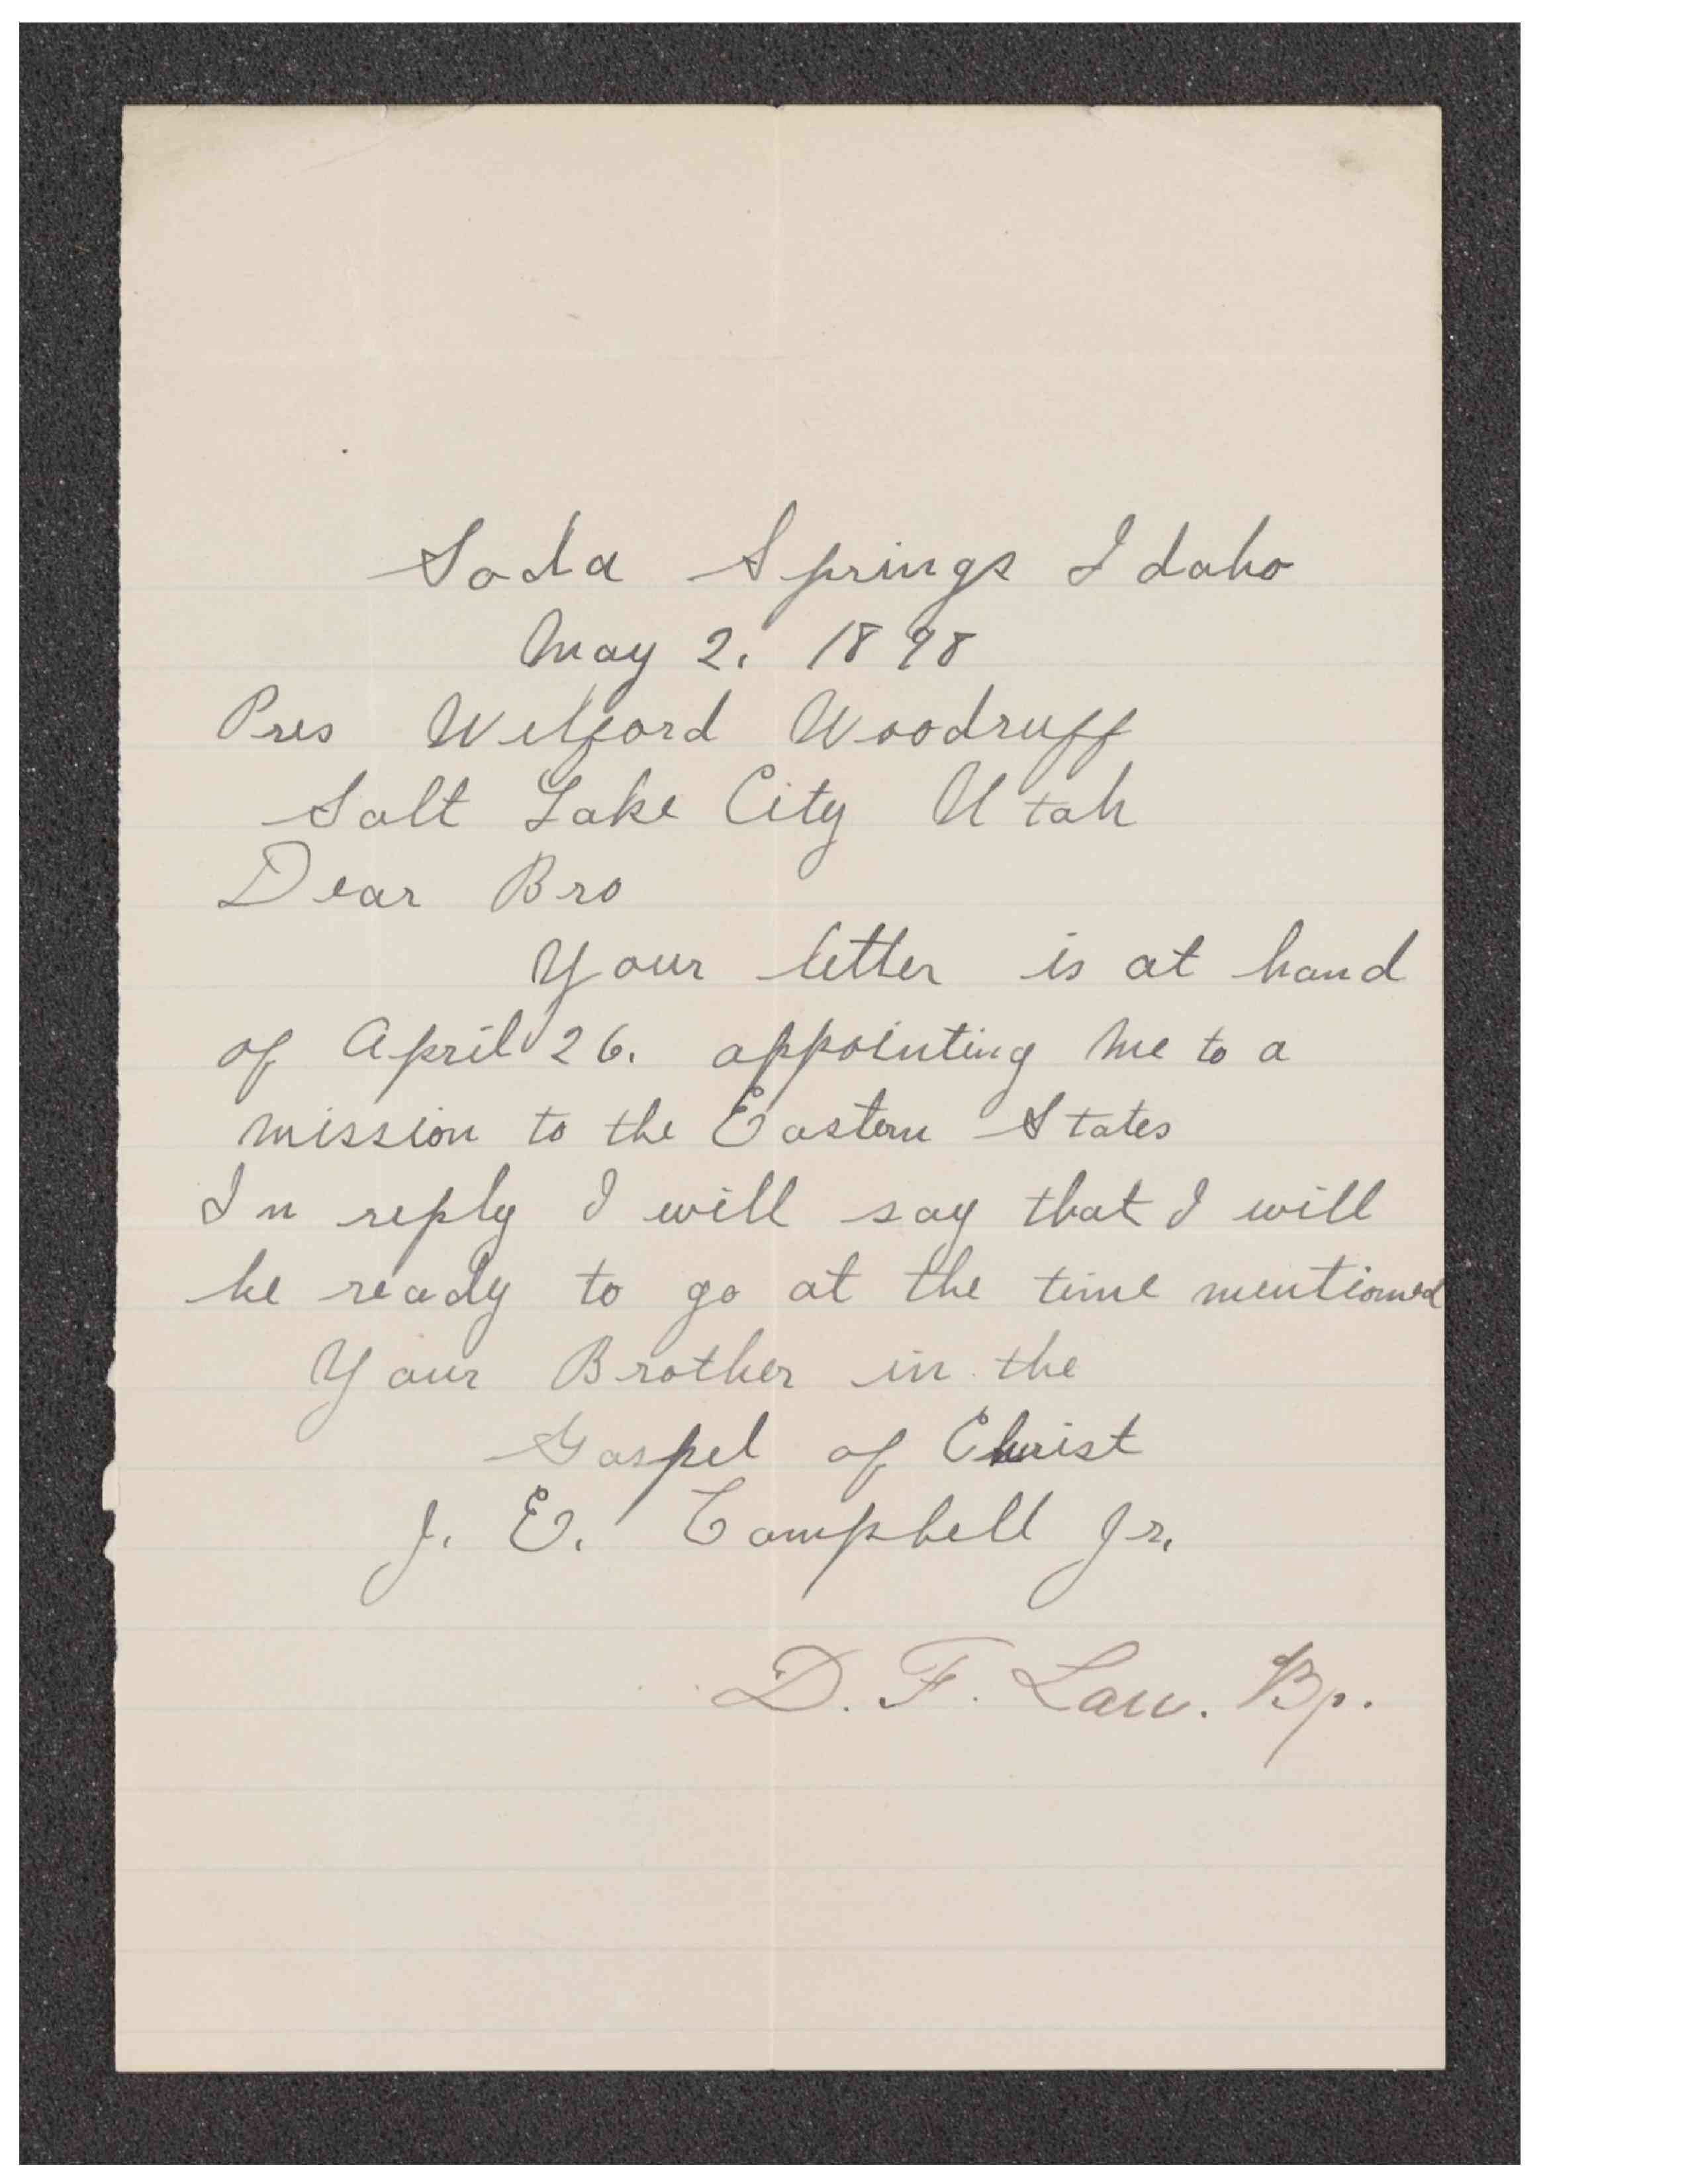 Soda Springs Idaho
May 2. 1898
Pres Wilford Woodruff
Salt Lake City Utah
Dear Bro
Your letter is at hand
of April 26. appointing me to a
mission to the Eastern States
In reply I will say that I will
be ready to go at the time mentioned
Your Brother in the
Gospel of Christ
J. E. Campbell Jr.
D. F. Lau. Bp.